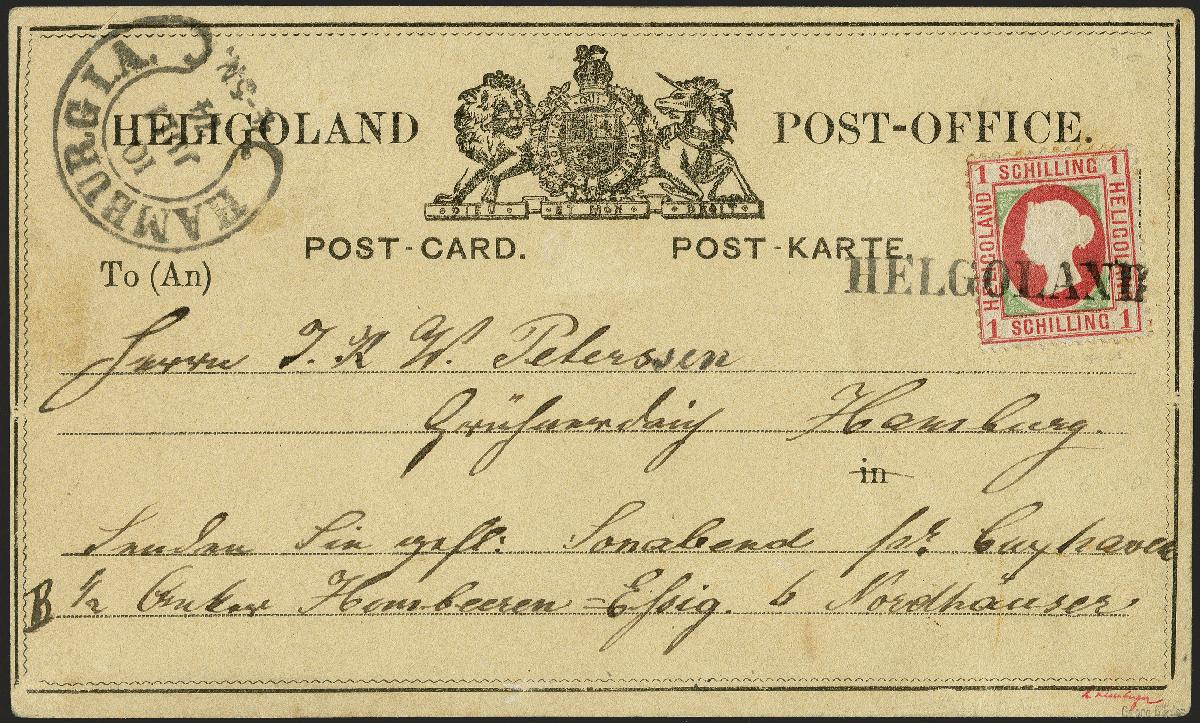 HAMBURG I.A.
10 JULI 74
HELIGOLAND POST-OFFICE.
QUI
DIEU ET MON DROIT
POST-CARD. POST-KARTE.
1 SCHILLING 1
HELIGOLAND
HELIGOLAND
1 SCHILLING 1
HELGOLAND
To (An)
Herrn J. K. W. Peterssen
Hamburg.
in
Senden Sie gefl: Sonabend pr. Cuxhaven
B 1/2 Anker Hombeeren-Essig. 6 Nordhäuser